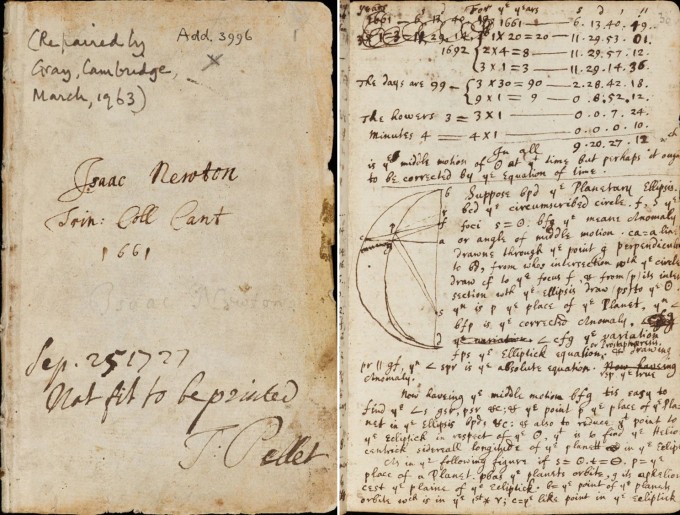 (Repaired by
Gray, Cambridge,
March, 1963)
Add. 3996
Isaac Newton
Trin: Coll Cant
1661
Isaac Newton
Sep. 25 1727
Not fit to be printed
T: Pellet
36
years
For yᵉ years
1661 — 6. 13. 40. 49.
1 × 20 = 20 — 11. 29. 53. 01.
1692 2 × 4 = 8 — 11. 29. 57. 12.
3 × 1 = 3 — 11. 29. 14. 36.
The days are 99 — 3 × 30 = 90 — 2. 28. 42. 18.
9 × 1 = 9 — 0. 8. 52. 12.
The howers 3 = 3 × 1 — 0. 0. 7. 24.
Minutes 4 = 4 × 1 — 0. 0. 0. 10.
In all 9. 20. 27. 12 wᶜʰ
is yᵉ middle motion of ☉ at yᵗ time but perhaps it ought
to be corrected by yᵉ Equation of time.
Suppose bpd yᵉ Planetary Ellipsis.
bcd yᵉ circumscribed circle. f, s yᵉ
foci s = ☉. bfg yᵉ meane Anomaly
or angle of middle motion. ca = a line
drawne through yᵉ point g perpendicular
to bd, from whos intersection wᵗʰ yᵉ circle
draw cf to yᵉ focus f, & from (p) its inter
section wᵗʰ yᵉ ellipsis draw ps to yᵉ ☉.
yⁿ is p yᵉ place of yᵉ Planet, yⁿ <
bfp is yᵉ corrected Anomaly. < cfg
yᵉ variation < cfg yᵉ variation
or Prosthaphaeresis.
fps yᵉ Elliptick equation, & drawing
pr || gf, yⁿ < spr is yᵉ absolute equation. Now haveing
Anomaly. yᵉ true
Now haveing yᵉ middle motion bfg tis easy to
find yᵉ <s gsr, psr &c; & yᵉ point p yᵉ place of yᵉ Pla
net in yᵉ Ellipsis bpd, &c: as also to reduce yᵗ point to
yᵉ Ecliptick in respect of yᵉ ☉, yᵗ is to find yᵉ Helio
centrick sidereall longitude of yᵉ planett in yᵉ Eclip
As in yᵉ following figure if s = ☉. p = yᵉ
place of a Planet. pbas yᵉ planets orbite, g its aphelion
cest yᵉ plaine of yᵉ Ecliptick. b = yᵉ point of yᵉ planets
orbite wᶜʰ is in yᵉ 1ˢᵗ * ♈; c = yᵉ like point in yᵉ Ecliptick